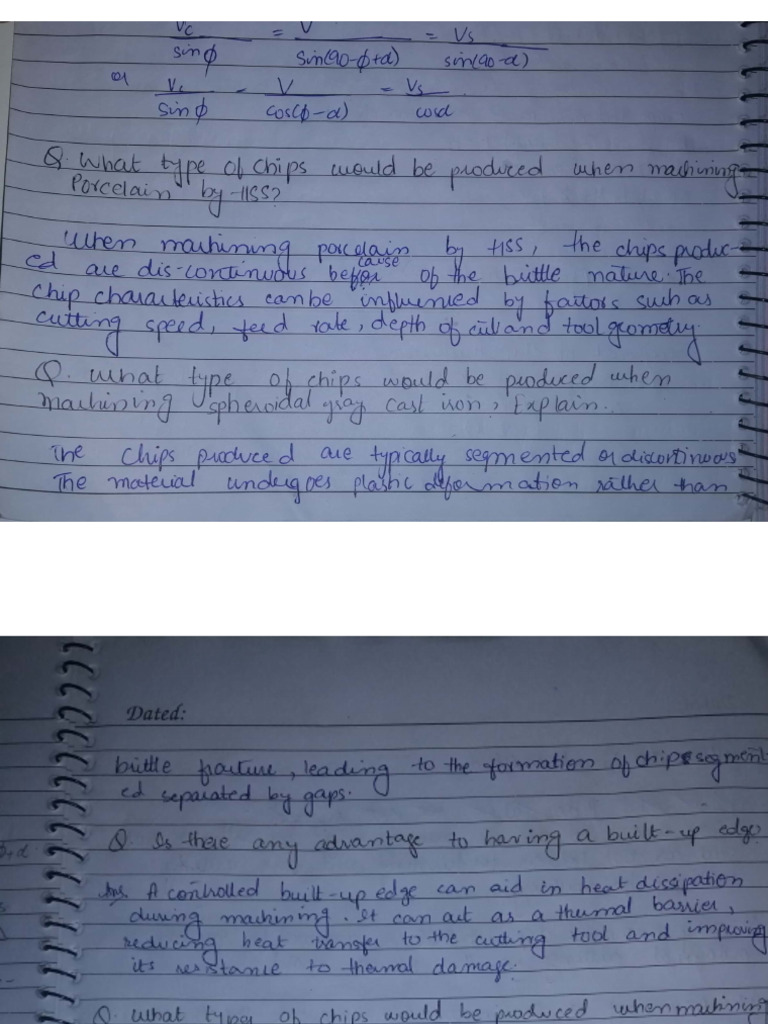 Vc/sinφ = V/sin(90-φ+α) = Vs/sin(90-α)
or Vc/sinφ = V/cos(φ-α) = Vs/cosα
Q. What type of chips would be produced when machining
Porcelain by HSS?
When machining porcelain by HSS, the chips produc-
ed are dis-continuous because of the brittle nature. The
chip characteristics can be influenced by factors such as
cutting speed, feed rate, depth of cut and tool geometry.
Q. What type of chips would be produced when
machining spheroidal gray cast iron, Explain.
The chips produced are typically segmented or discontinuous
The material undergoes plastic deformation rather than
Dated:
brittle fracture, leading to the formation of chip segment-
ed separated by gaps.
Q. Is there any advantage to having a built-up edge
Ans A controlled built-up edge can aid in heat dissipation
during machining. It can act as a thermal barrier,
reducing heat transfer to the cutting tool and improving
its resistance to thermal damage.
Q. What types of chips would be produced when machining